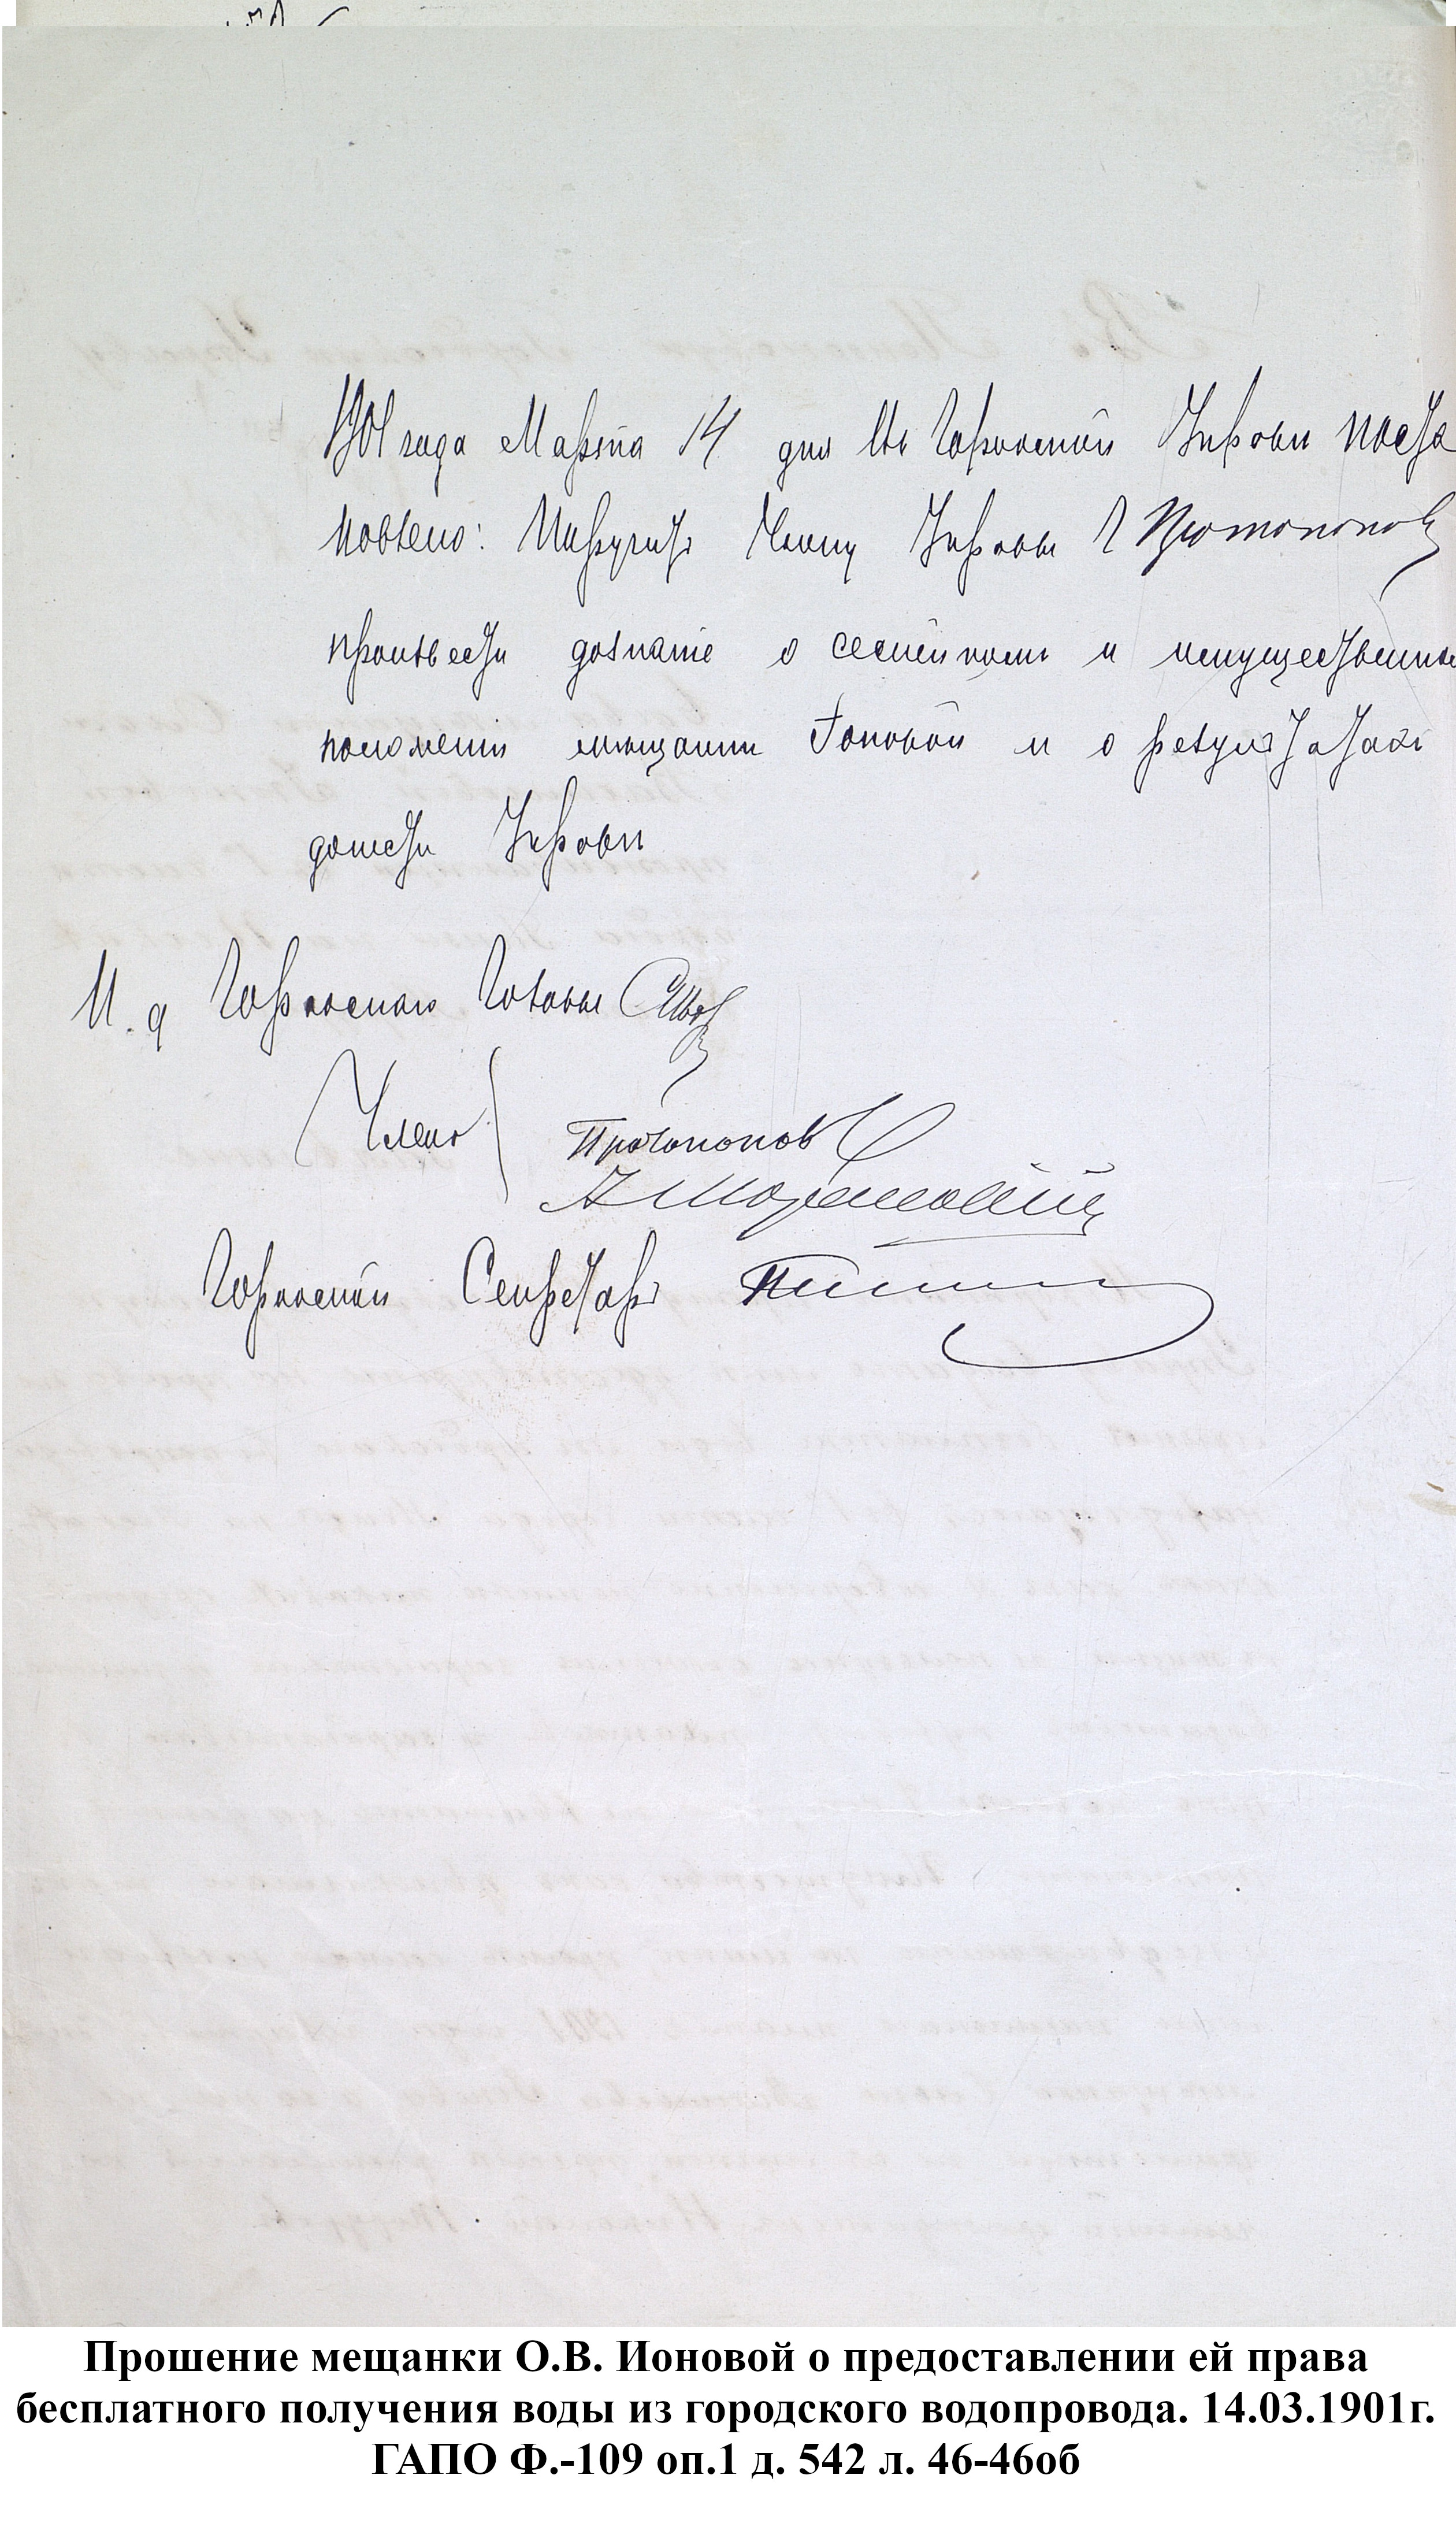 1901 года Марта 14 дня въ Городской Управѣ поста
новлено: Поручить Члену Управы Г Протопопову
произвести дознаніе о семейномъ и имущественно
положеніи мѣщанки Іоновой и о результатахъ
донести Управѣ
И. д Городского Головы
Члены Протопопов
Городской Секретарь
Прошение мещанки О.В. Ионовой о предоставлении ей права
бесплатного получения воды из городского водопровода. 14.03.1901г.
ГАПО Ф.-109 оп.1 д. 542 л. 46-46об